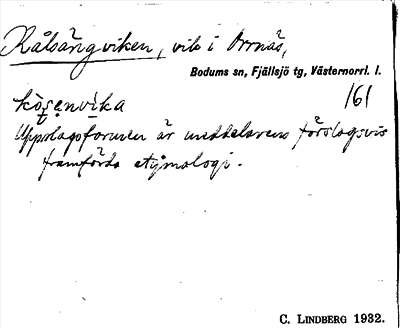 Kålsängviken, vik i Orrnäs,
Bodums sn, Fjällsjö tg, Västernorrl. l.
kòsenvika 161
Uppslagsformen är meddelarens förslagsvis
framförda etymologi.
C. LINDBERG 1932.